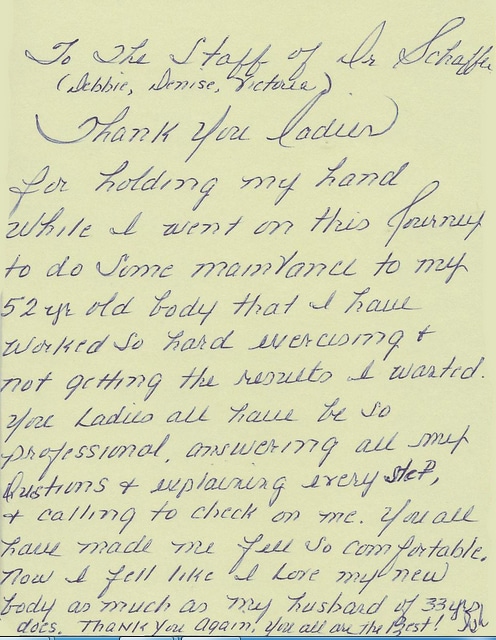 To The Staff of Dr Schaffer
(Debbie, Denise, Victoria)
Thank You Ladies
for holding my hand
While I went on this Journey
to do Some maintance to my
52 yr old body that I have
worked so hard exercising +
not getting the results I wanted.
You Ladies all have be so
professional, answering all my
Qustions + explaining every step,
+ calling to check on me. You all
have made me fell so comfortable.
Now I fell like I Love my new
body as much as my husband of 33 yrs
does. Thank You Again. You all are the Best!